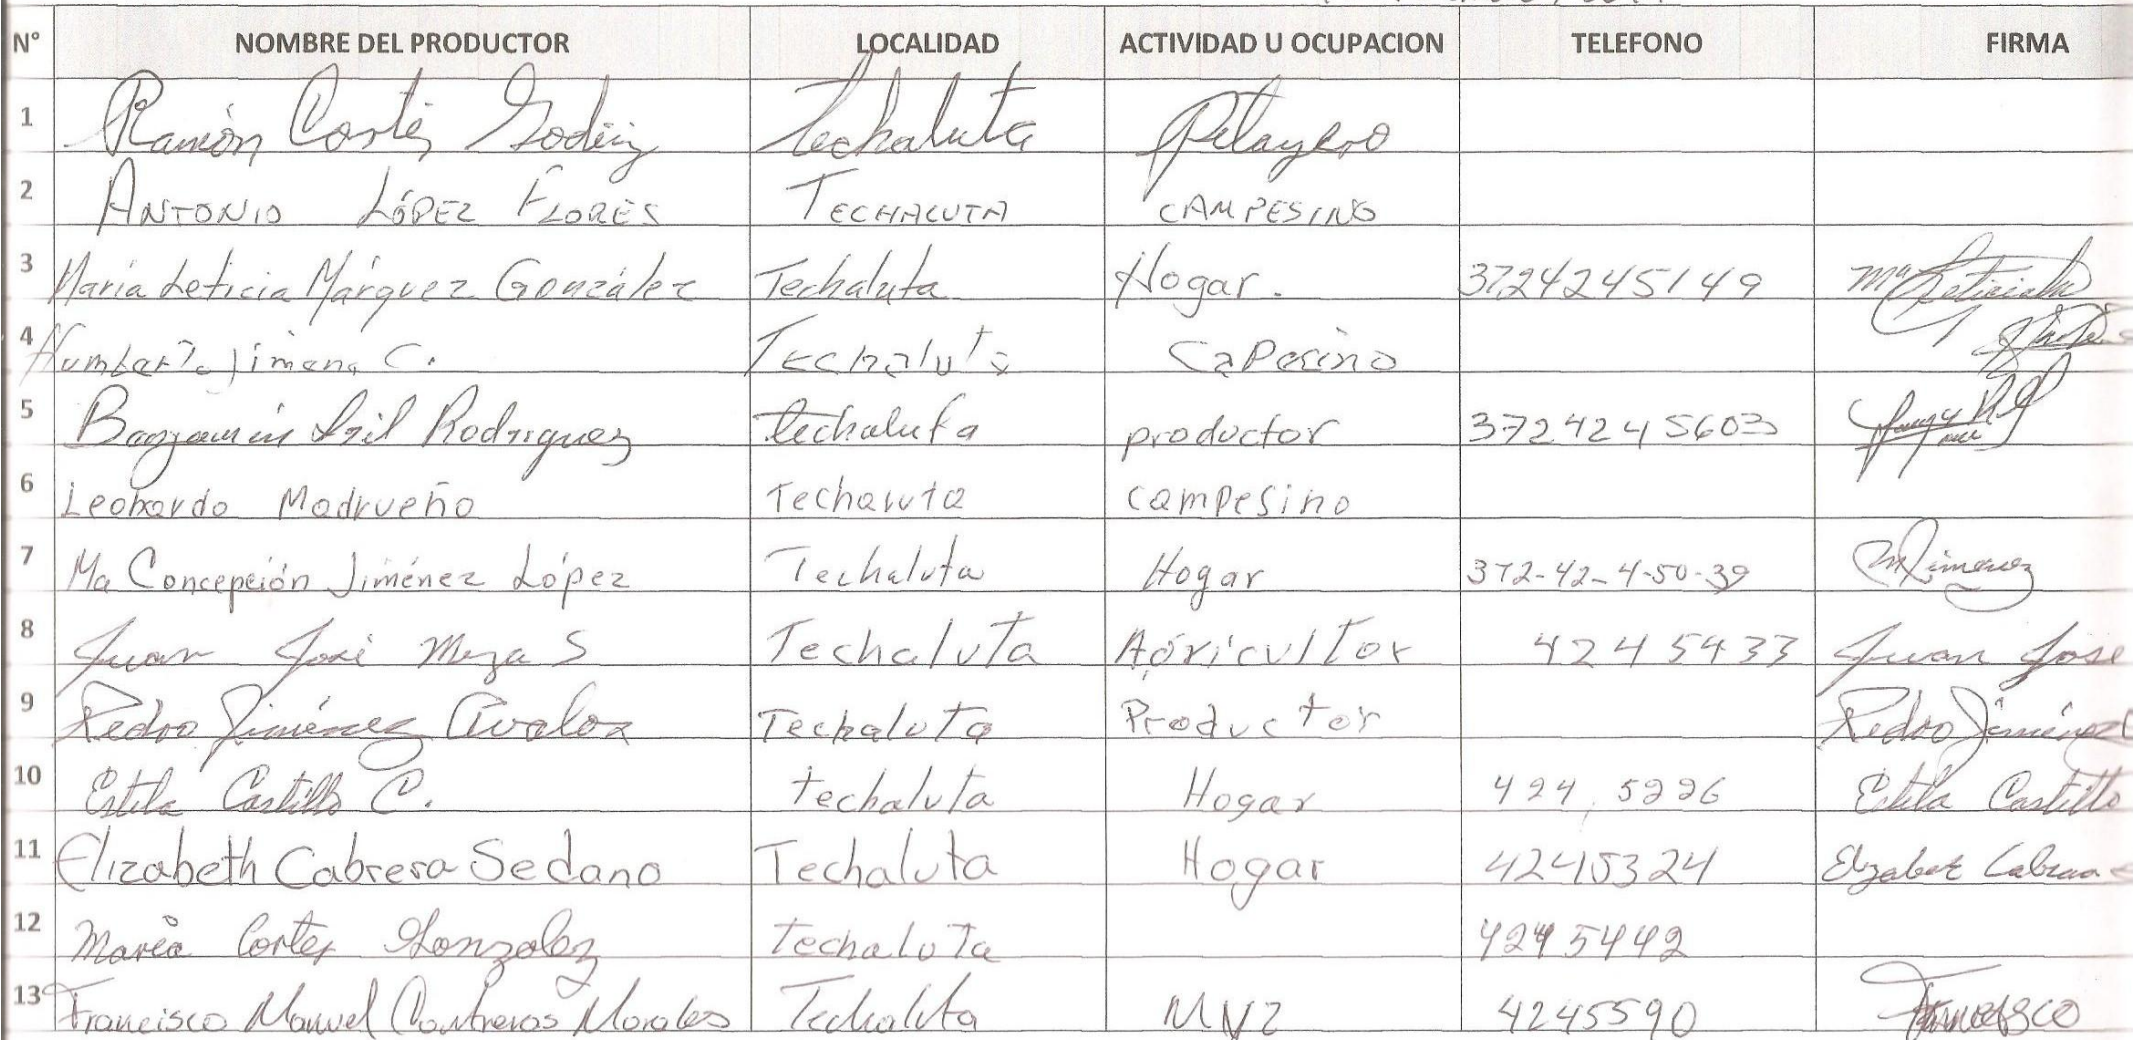 N° NOMBRE DEL PRODUCTOR LOCALIDAD ACTIVIDAD U OCUPACION TELEFONO FIRMA
1 Ramón Cortés Godínez Techaluta Pitayero
2 ANTONIO LÓPEZ FLORES TECHALUTA CAMPESINO
3 María Leticia Márquez González Techaluta Hogar. 3724245149 Mª Leticia
4 Humberto Jimene C. Techaluta Capesino
5 Benjamin Gil Rodriguez Techaluta productor 3724245603
6 Leonardo Madrueño Techaluta campesino
7 Ma Concepción Jiménez López Techaluta Hogar 372-42-4-50-39 Jimenez
8 Juan José Meza S Techaluta Agricultor 4245433 Juan Jose
9 Pedro Jiménez Avalos Techaluta Productor Pedro Jiménez
10 Estela Castillo C. techaluta Hogar 424 5226 Estela Castillo
11 Elizabeth Cabrera Sedano Techaluta Hogar 4245324 Elzabet Cabrera
12 Maria Cortes Gonzalez techaluta 4245442
13 Francisco Manuel Contreras Morales Techaluta MVZ 4245590 Francisco